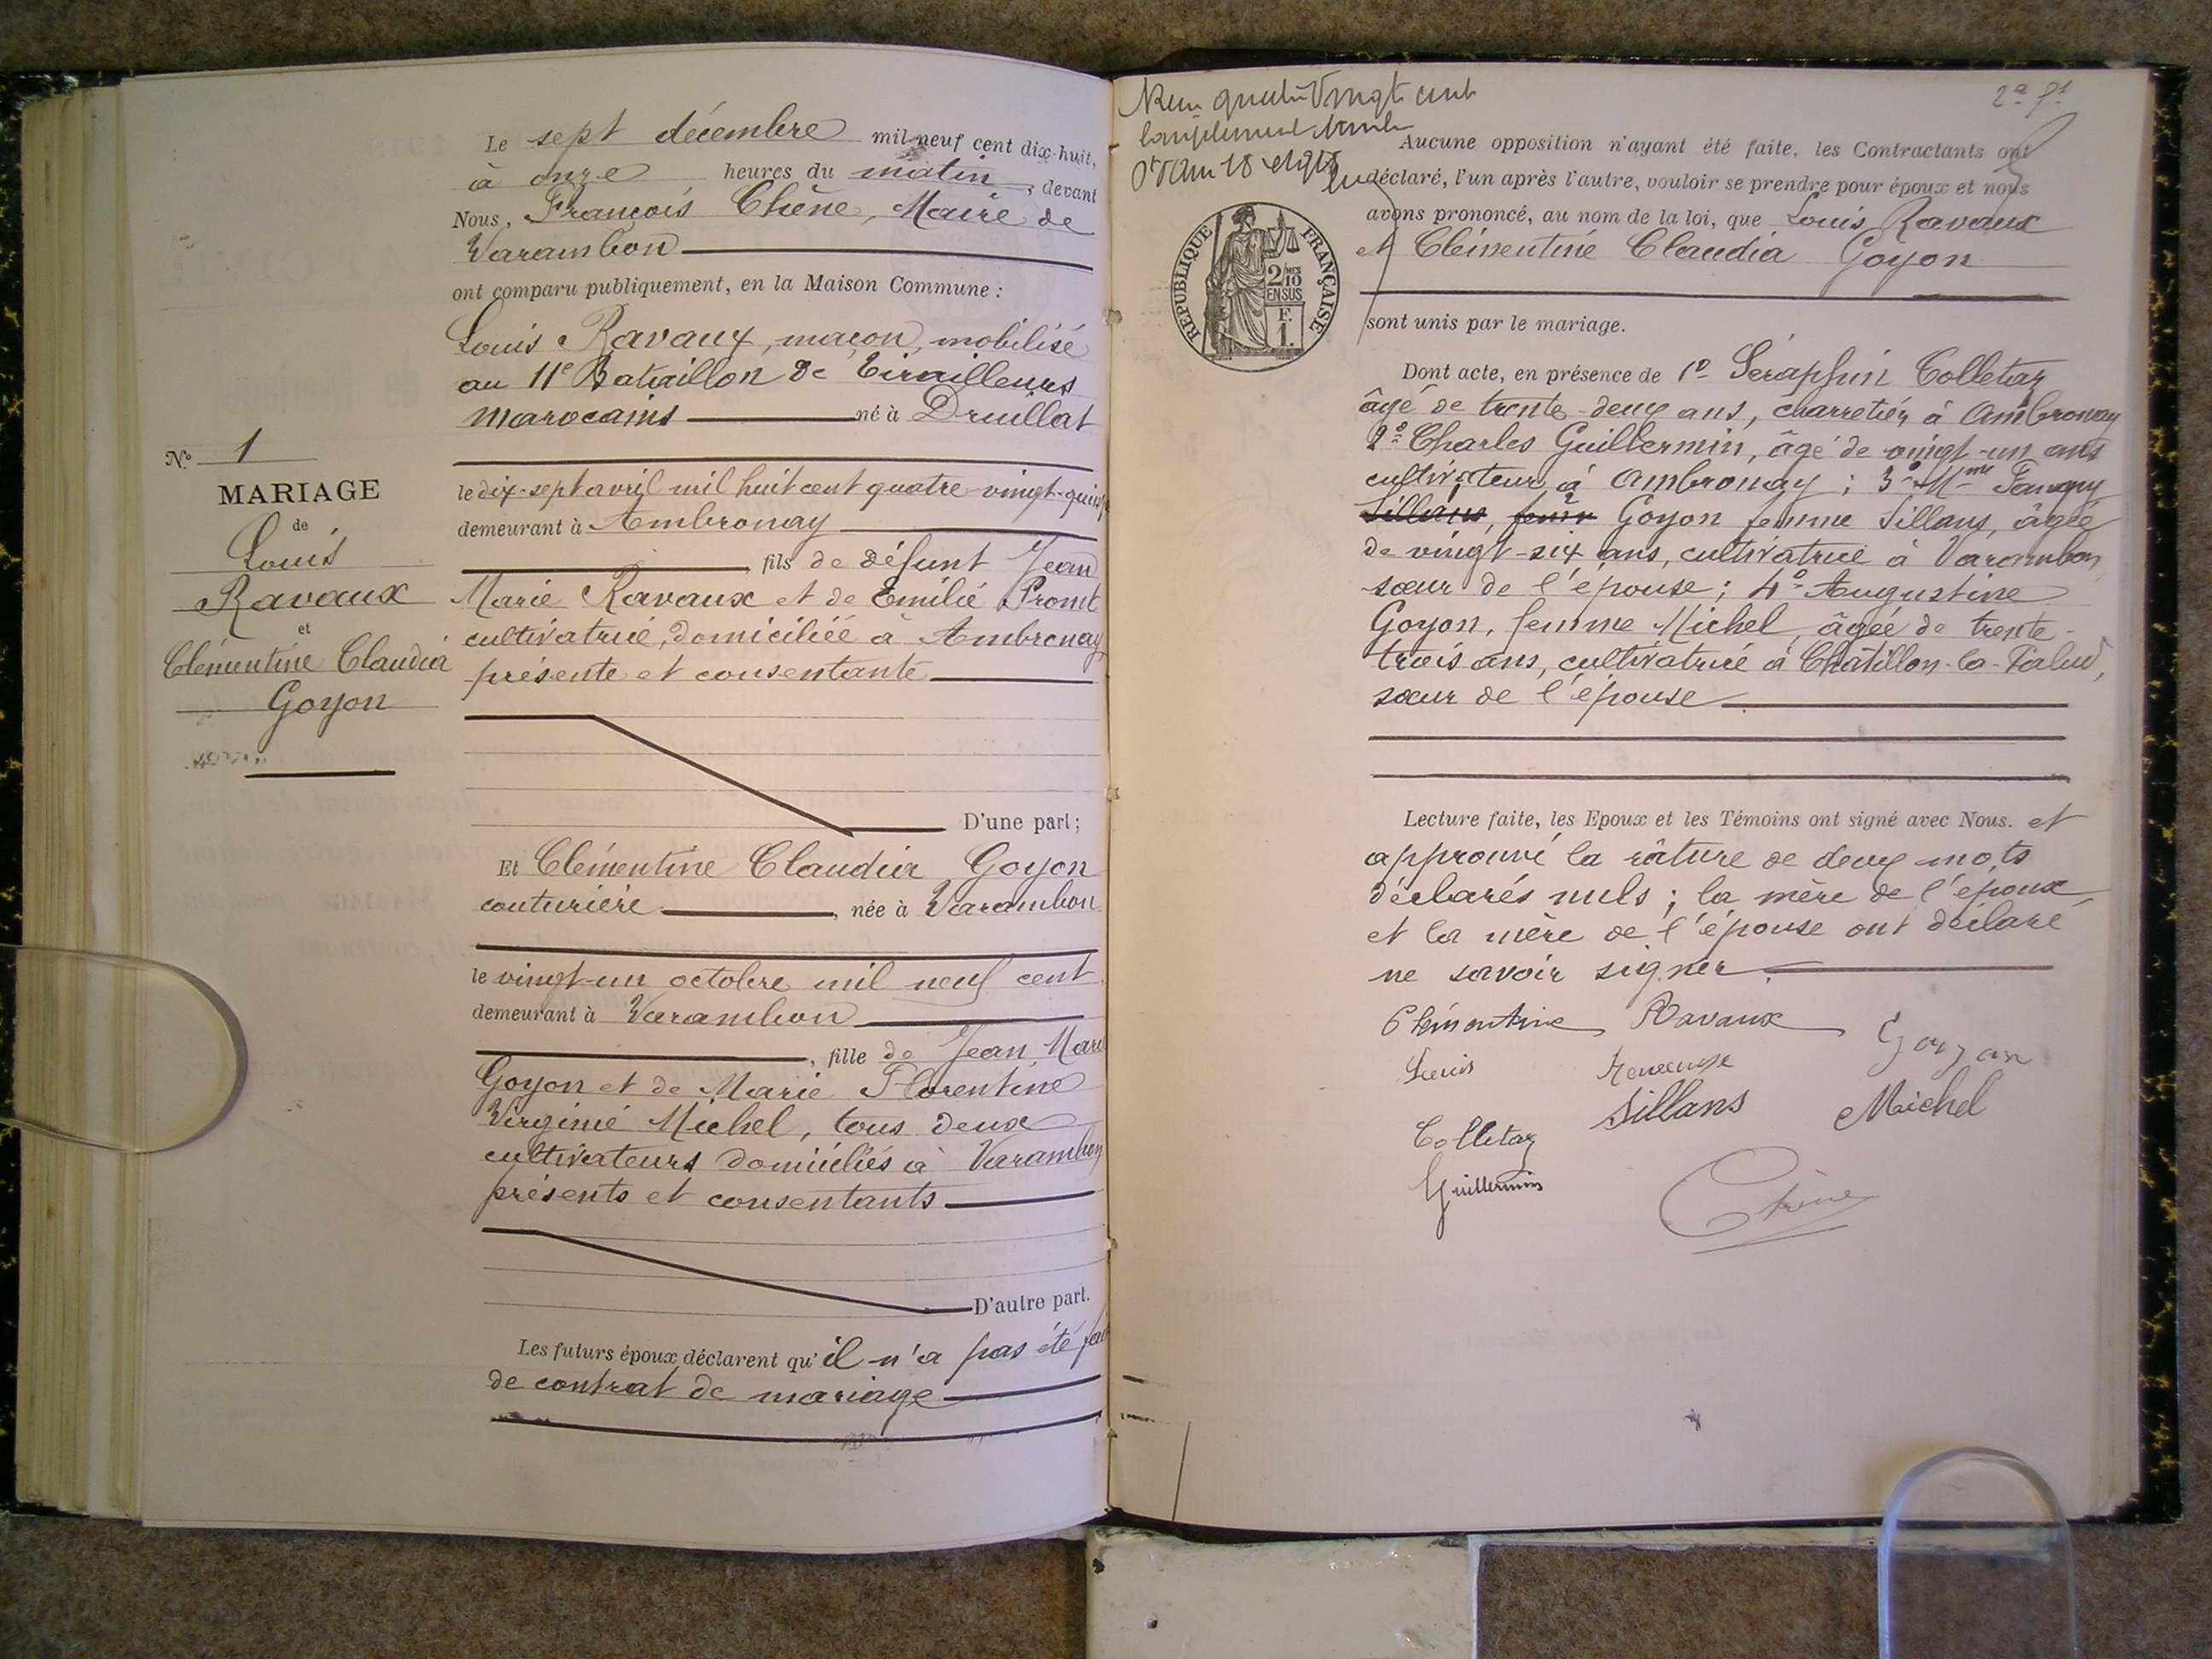 Le sept décembre mil neuf cent dix-huit,
à onze heures du matin, devant
Nous, François Chêne, Maire de
Varambon
ont comparu publiquement, en la Maison Commune :
Louis Ravaux, maçon, mobilisé
au 11e Bataillon de Tirailleurs
marocains né à Druillat
le dix-sept avril mil huit cent quatre-vingt-quinze
demeurant à Ambronay
, fils de défunt Jean
Marie Ravaux et de Emilie Promt
cultivatrice, domiciliée à Ambronay,
présente et consentante
D'une part ;
Et Clémentine Claudia Goyon
couturière, née à Varambon
le vingt-un octobre mil neuf cent
demeurant à Varambon
, fille de Jean Marie
Goyon et de Marie Florentine
Virginie Michel, tous deux
cultivateurs domiciliés à Varambon
présents et consentants
D'autre part.
Les futurs époux déclarent qu'il n'a pas été fait
de contrat de mariage
No 1
MARIAGE
de
Louis
Ravaux
et
Clémentine Claudia
Goyon
2e
Aucune opposition n'ayant été faite, les Contractants ont
déclaré, l'un après l'autre, vouloir se prendre pour époux et nous
avons prononcé, au nom de la loi, que Louis Ravaux
et Clémentine Claudia Goyon
sont unis par le mariage.
RÉPUBLIQUE FRANÇAISE
2/10MES
EN SUS
F.
1.
Dont acte, en présence de 1o Séraphin Colletaz
âgé de trente-deux ans, charretier à Ambronay
2o Charles Guillermin, âgé de vingt-un ans
cultivateur à Ambronay ; 3o Mme
Sillans, Goyon femme Sillans, âgée
de vingt-six ans, cultivatrice à Varambon
sœur de l'épouse ; 4o Augustine
Goyon, femme Michel, âgée de trente-
trois ans, cultivatrice à Châtillon-la-Palud,
sœur de l'épouse
Lecture faite, les Epoux et les Témoins ont signé avec Nous. et
approuvé la râture de deux mots
déclarés nuls ; la mère de l'époux
et la mère de l'épouse ont déclaré
ne savoir signer.
Clémentine Ravaux Goyon
Louis Ravaux
Sillans Michel
Colletaz
Guillermin
Chêne